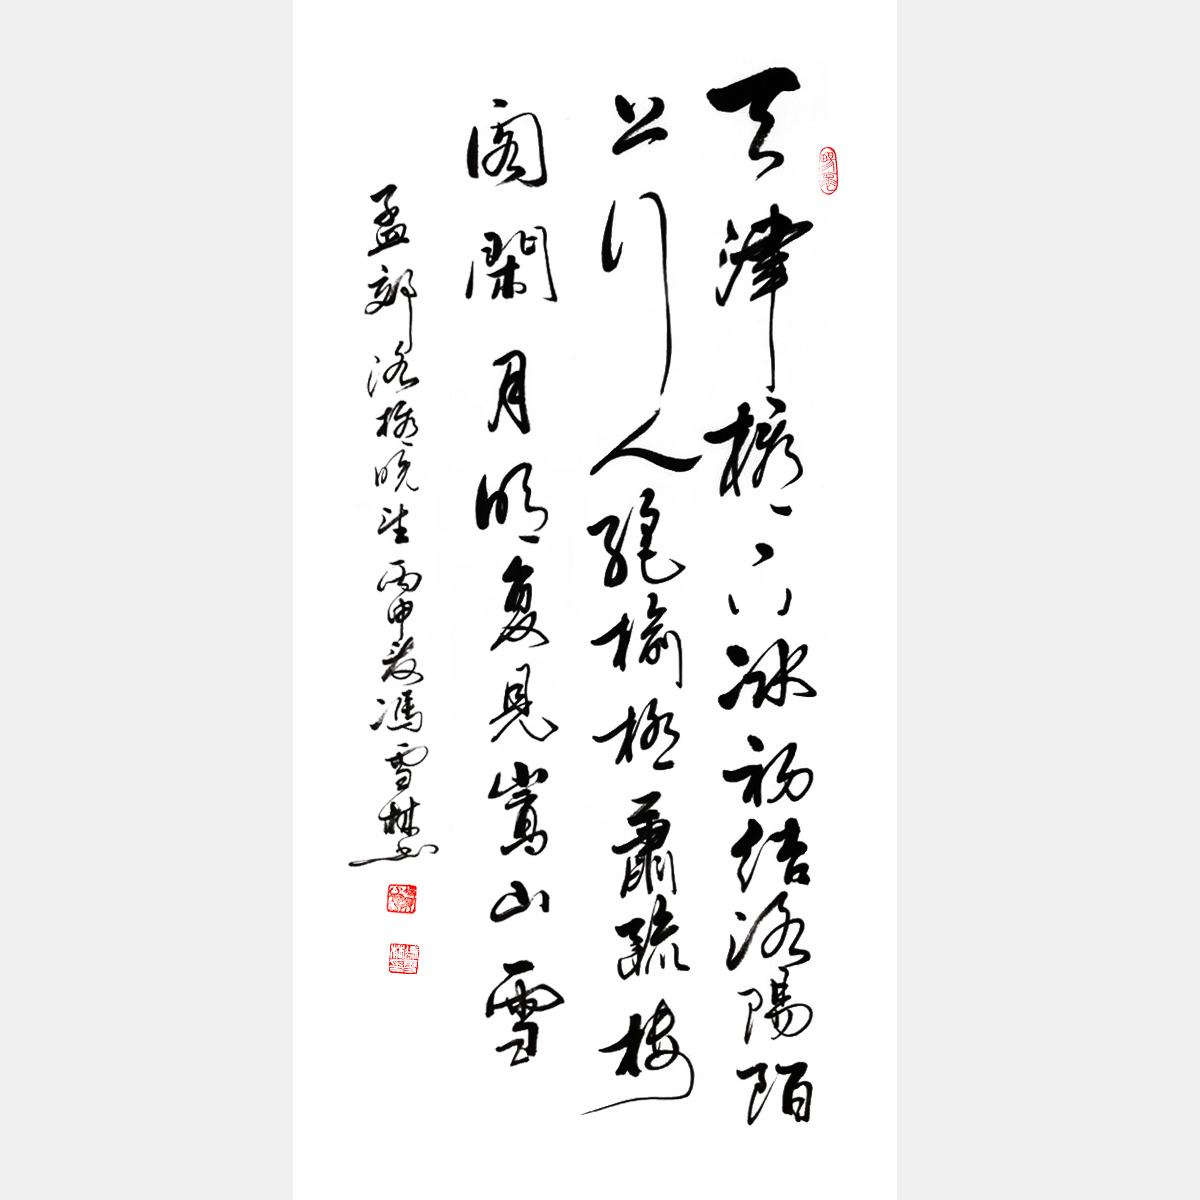 天津橋下冰初結洛陽陌
上行人絕榆柳蕭疏樓
閣閑月明复見嵩山雪
孟郊洛橋晚望丙申歲馮雪林書